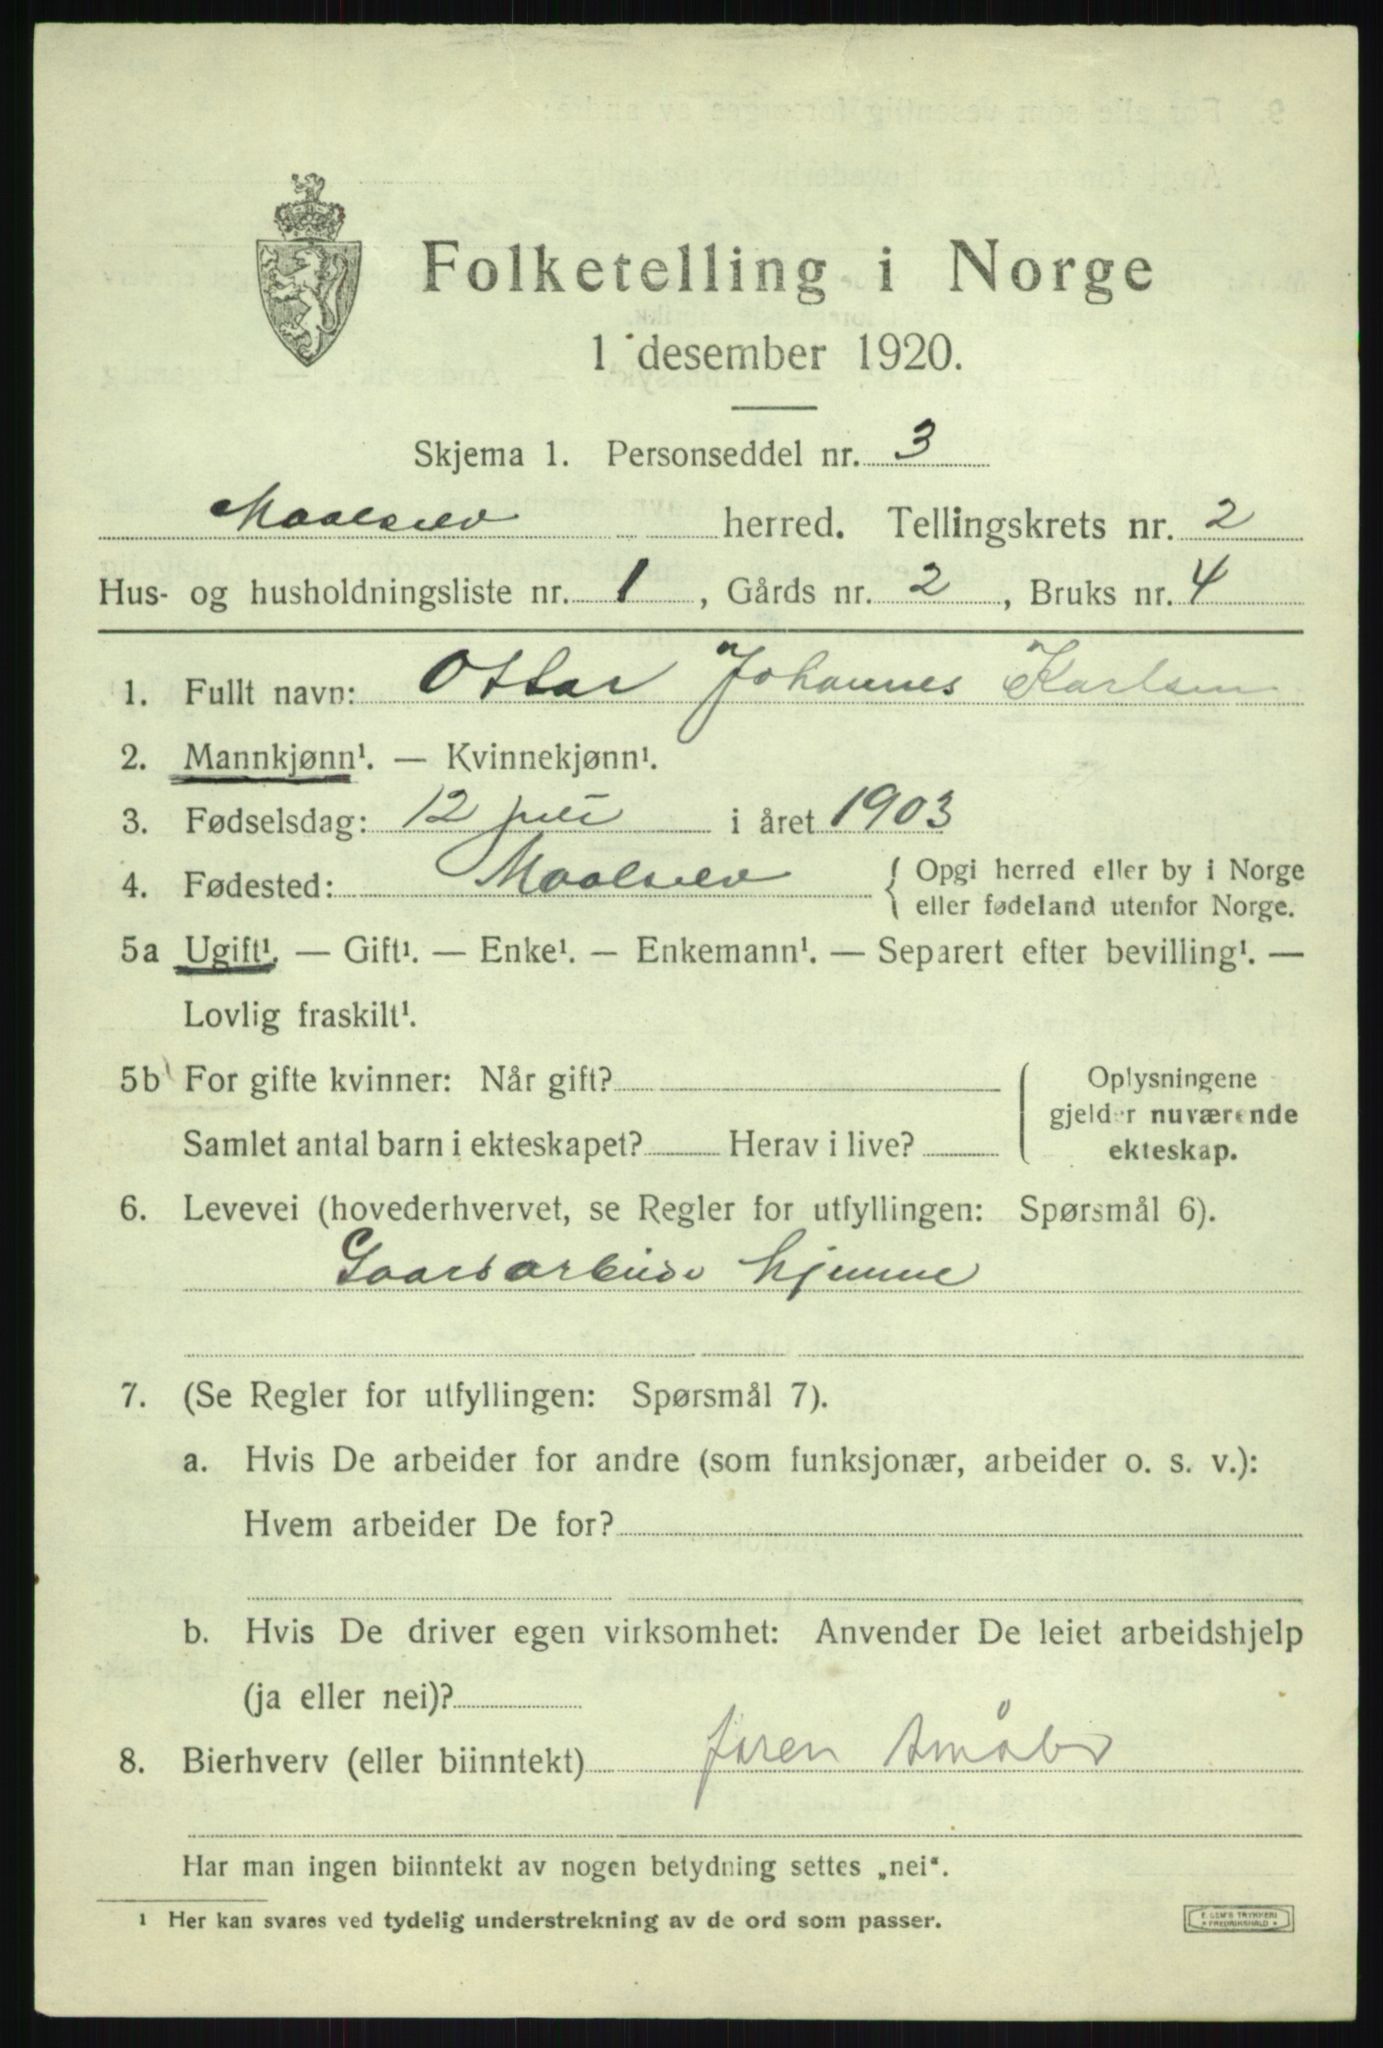 Folketelling i Norge
1 desember 1920.
Skjema 1. Personseddel nr. 3
Maalselv herred. Tellingskrets nr. 2
Hus- og husholdningsliste nr. 1, Gårds nr. 2, Bruks nr. 4
1. Fullt navn: Ottar Johannes Karlsen
2. Mannkjønn¹. — Kvinnekjønn¹.
3. Fødselsdag: 12 juli i året 1903
4. Fødested: Maalselv { Opgi herred eller by i Norge
eller fødeland utenfor Norge.
5a Ugift¹. — Gift¹. — Enke¹. — Enkemann¹. — Separert efter bevilling¹. —
Lovlig fraskilt¹.
5b For gifte kvinner: Når gift?
Samlet antal barn i ekteskapet? Herav i live?
Oplysningene
gjelder nuværende
ekteskap.
6. Levevei (hovederhvervet, se Regler for utfyllingen: Spørsmål 6).
Gaardsarbeide hjemme
7. (Se Regler for utfyllingen: Spørsmål 7).
a. Hvis De arbeider for andre (som funksjonær, arbeider o. s. v.):
Hvem arbeider De for?
b. Hvis De driver egen virksomhet: Anvender De leiet arbeidshjelp
(ja eller nei)?
8. Bierhverv (eller biinntekt)
Har man ingen biinntekt av nogen betydning settes „nei“.
¹ Her kan svares ved tydelig understrekning av de ord som passer.
E. SEM'S TRYKKERI
FREDRIKSHALD